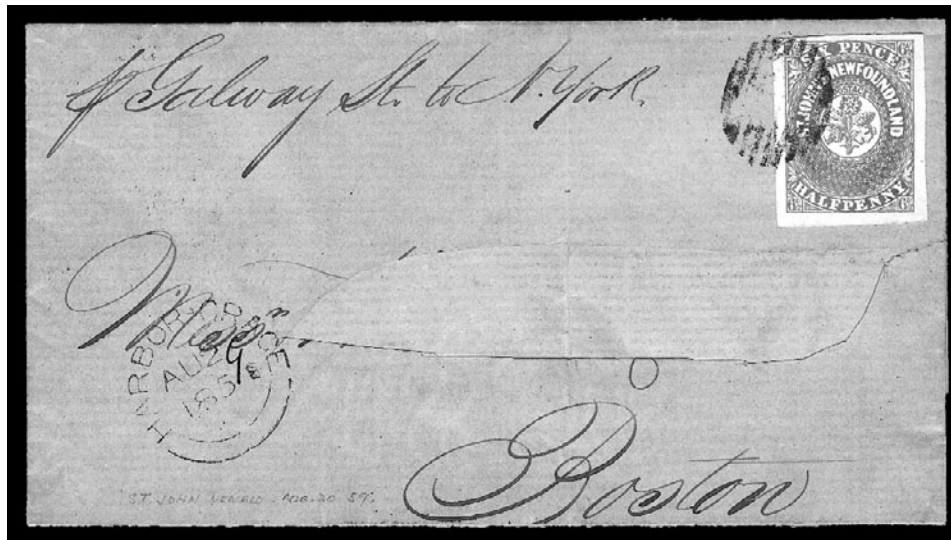 p Galway St. to N. York.
SIX PENCE
ST. JOHN'S NEWFOUNDLAND
HALFPENNY
Messrs
HARBOR GRACE
AU 29
185
Boston
ST. JOHN AUG. 30 59.